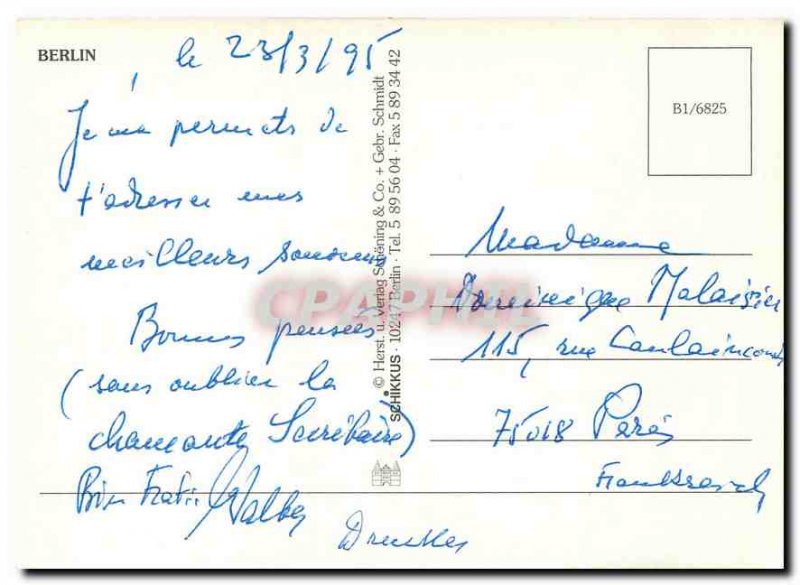 BERLIN
le 23/3/95
Je me permets de
t'adresser mes
meilleurs souvenirs
Bonnes pensées
(sans oublier la
charmante Secrétaire)
Bien
© Herst. u. verlag Schöning & Co. + Gebr. Schmidt
SCHIKKUS · 10247 Berlin · Tel. 5 89 56 04 · Fax 5 89 34 42
CPAPHIL
B1/6825
Madame
Dominique Malaisier
115, rue Caulaincourt
75018 Paris
Frankreich